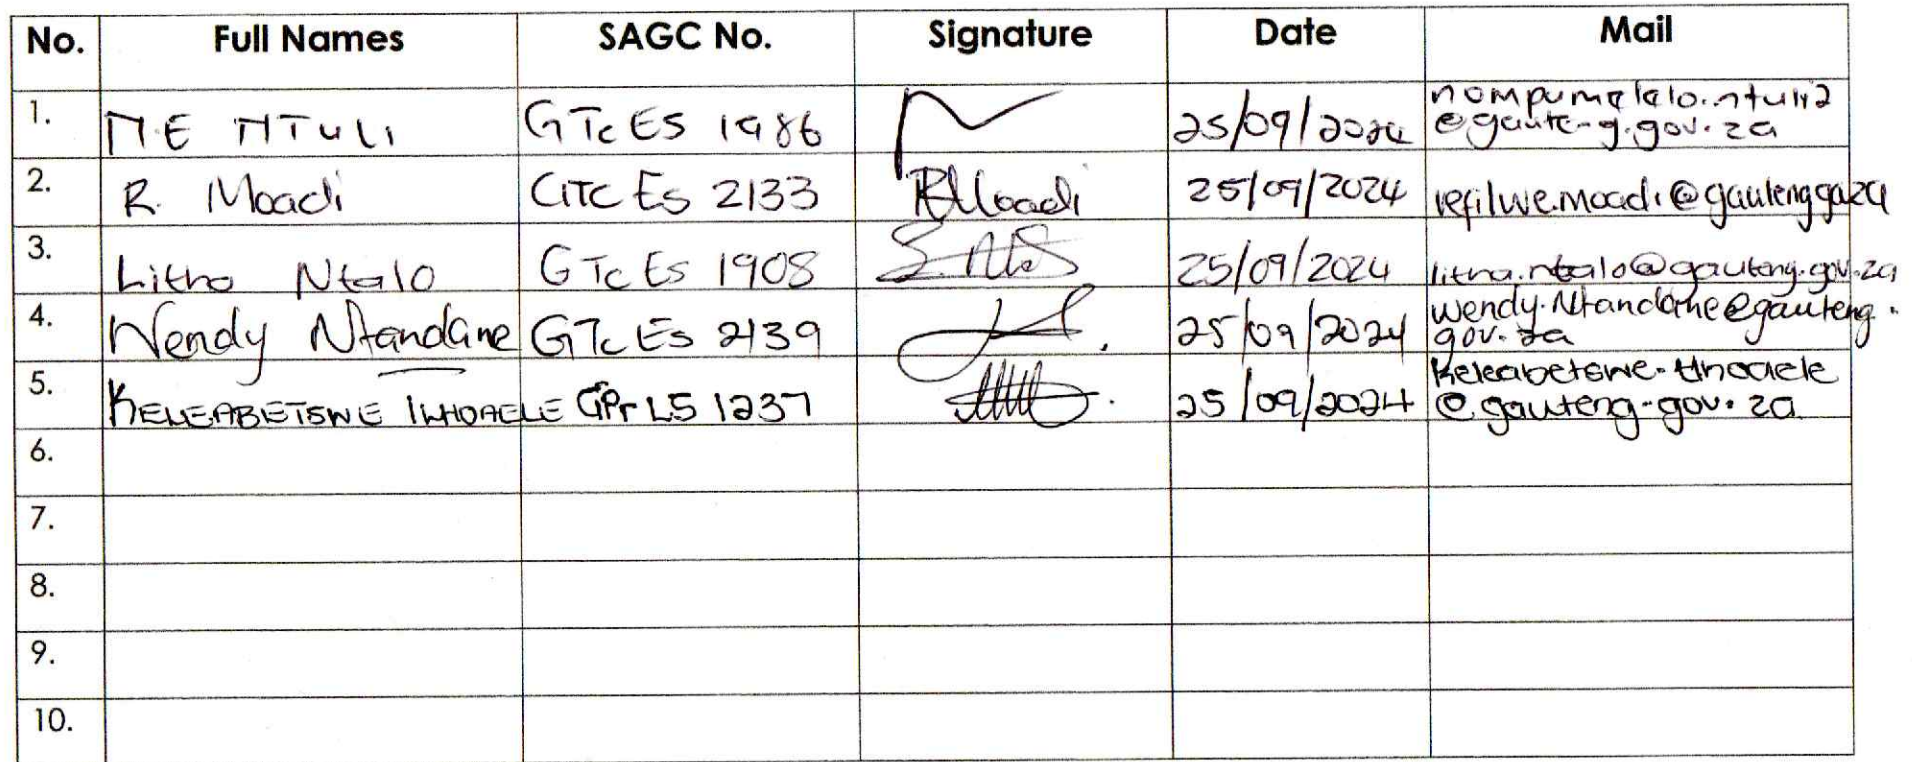 No. Full Names SAGC No. Signature Date Mail
1. N.E NTULI GTc ES 1986 25/09/2024 nompumelelo.ntuli2
@gauteng.gov.za
2. R. Moadi GTc Es 2133 RMoadi 25/09/2024 refilwe.moadi@gauteng.go.za
3. Litha Ntalo GTc Es 1908 25/09/2024 litha.ntalo@gauteng.gov.za
4. Wendy Ntandane GTc Es 2139 25/09/2024 wendy.Ntandane@gauteng.
gov.za
5. KELEABETSWE GPr LS 1237 25/09/2024 Keleabetswe.
@gauteng.gov.za
6.
7.
8.
9.
10.